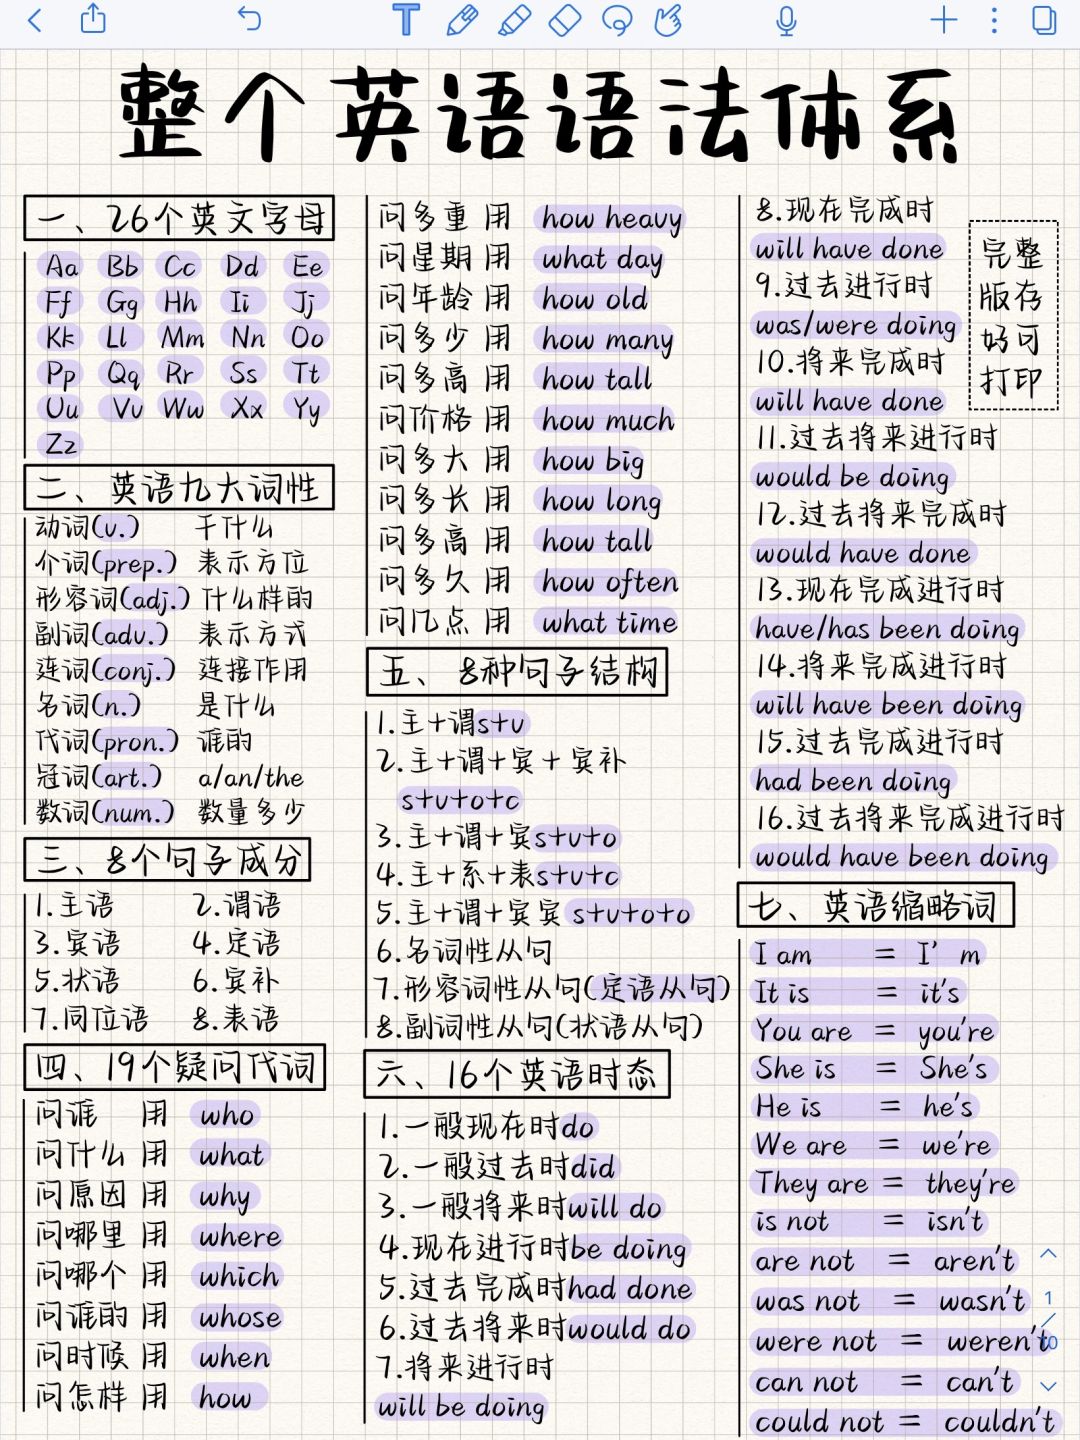 整个英语语法体系
一、26个英文字母
Aa Bb Cc Dd Ee
Ff Gg Hh Ii Jj
Kk Ll Mm Nn Oo
Pp Qq Rr Ss Tt
Uu Vv Ww Xx Yy
Zz
二、英语九大词性
动词(v.) 干什么
介词(prep.) 表示方位
形容词(adj.) 什么样的
副词(adv.) 表示方式
连词(conj.) 连接作用
名词(n.) 是什么
代词(pron.) 谁的
冠词(art.) a/an/the
数词(num.) 数量多少
三、8个句子成分
1.主语 2.谓语
3.宾语 4.定语
5.状语 6.宾补
7.同位语 8.表语
四、19个疑问代词
问谁 用 who
问什么 用 what
问原因 用 why
问哪里 用 where
问哪个 用 which
问谁的 用 whose
问时候 用 when
问怎样 用 how
问多重 用 how heavy
问星期 用 what day
问年龄 用 how old
问多少 用 how many
问多高 用 how tall
问价格 用 how much
问多大 用 how big
问多长 用 how long
问多高 用 how tall
问多久 用 how often
问几点 用 what time
五、8种句子结构
1.主+谓s+v
2.主+谓+宾+宾补
s+v+o+c
3.主+谓+宾s+v+o
4.主+系+表s+v+c
5.主+谓+宾宾 s+v+o+o
6.名词性从句
7.形容词性从句(定语从句)
8.副词性从句(状语从句)
六、16个英语时态
1.一般现在时do
2.一般过去时did
3.一般将来时will do
4.现在进行时be doing
5.过去完成时had done
6.过去将来时would do
7.将来进行时
will be doing
8.现在完成时
will have done
9.过去进行时
was/were doing
10.将来完成时
will have done
11.过去将来进行时
would be doing
12.过去将来完成时
would have done
13.现在完成进行时
have/has been doing
14.将来完成进行时
will have been doing
15.过去完成进行时
had been doing
16.过去将来完成进行时
would have been doing
完整
版存
好可
打印
七、英语缩略词
I am = I' m
It is = it's
You are = you're
She is = She's
He is = he's
We are = we're
They are = they're
is not = isn't
are not = aren't
was not = wasn't
were not = weren't
can not = can't
could not = couldn't
1
/
10